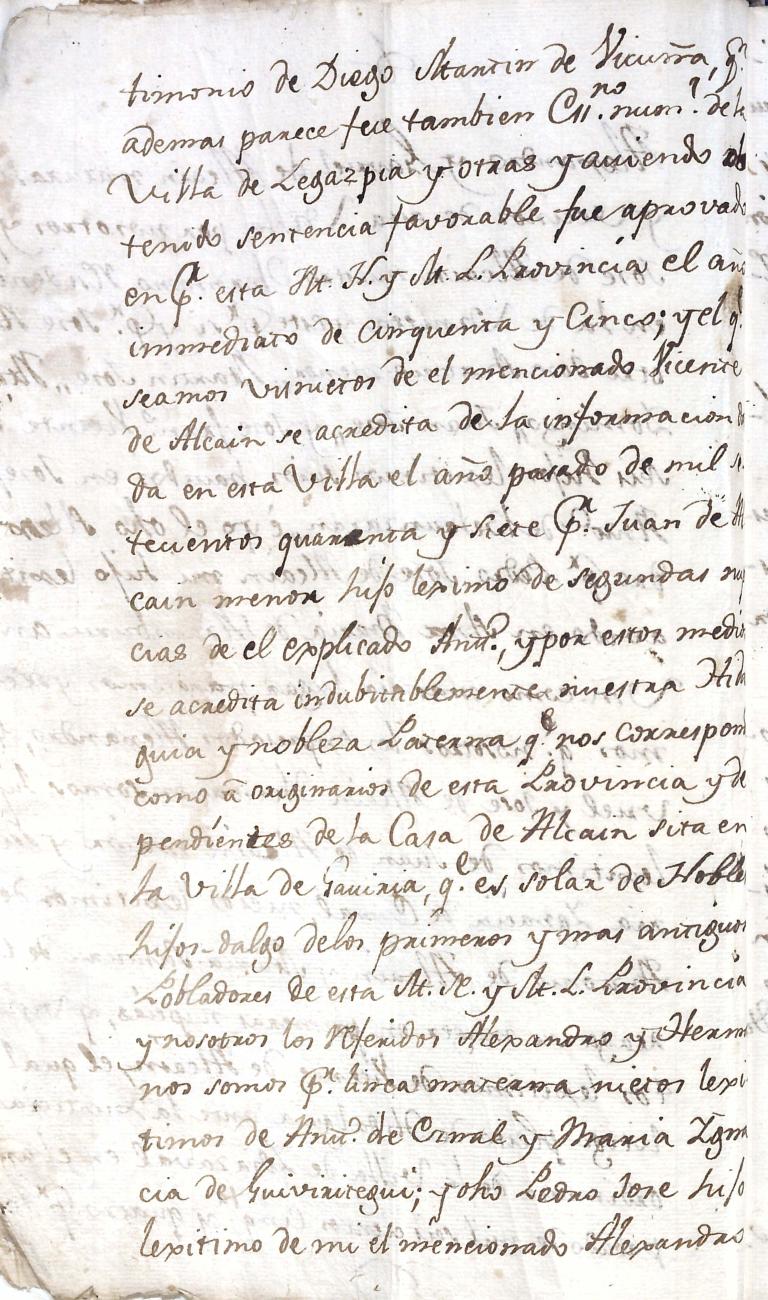 timonio de Diego Martin de Vicuña, qn
ademas parece fue tambien Essno. numl. de la
Villa de Legazpia y otras y aviendo ob
tenido sentencia favorable fue aprovado
en Pr. esta M. N. y M. L. Provincia el año
immediato de cinquenta y Cinco; y el q.
seamos visnietos de el mencionado Vicente
de Alcain se acredita de la informacion
da en esta Villa el año pasado de mil s
tecientos quarenta y siete Pr. Juan de Al
cain menor hijo leximo de segundas nup
cias de el explicado Anto., y por estos medio
se acredita indubitablemente nuestra Hidal
guia y nobleza Paterna qe. nos correspon
como â originarios de esta Provincia y de
pendientes de la Casa de Alcain sita en
la villa de Gaviria, qe. es, solar de Noble
hijos-dalgo delos primeros y mas antiguos
Pobladores de esta M. N. y M. L. Provincia
y nosotros los Referidos Alexandro y Herm
nos somos Pr. linea materna nietos lexi
timos de Anto. de Ernal y Maria Igna
cia de Guiviritegui; y oho Pedro Jose hijo
lexitimo de mi el mencionado Alexandro